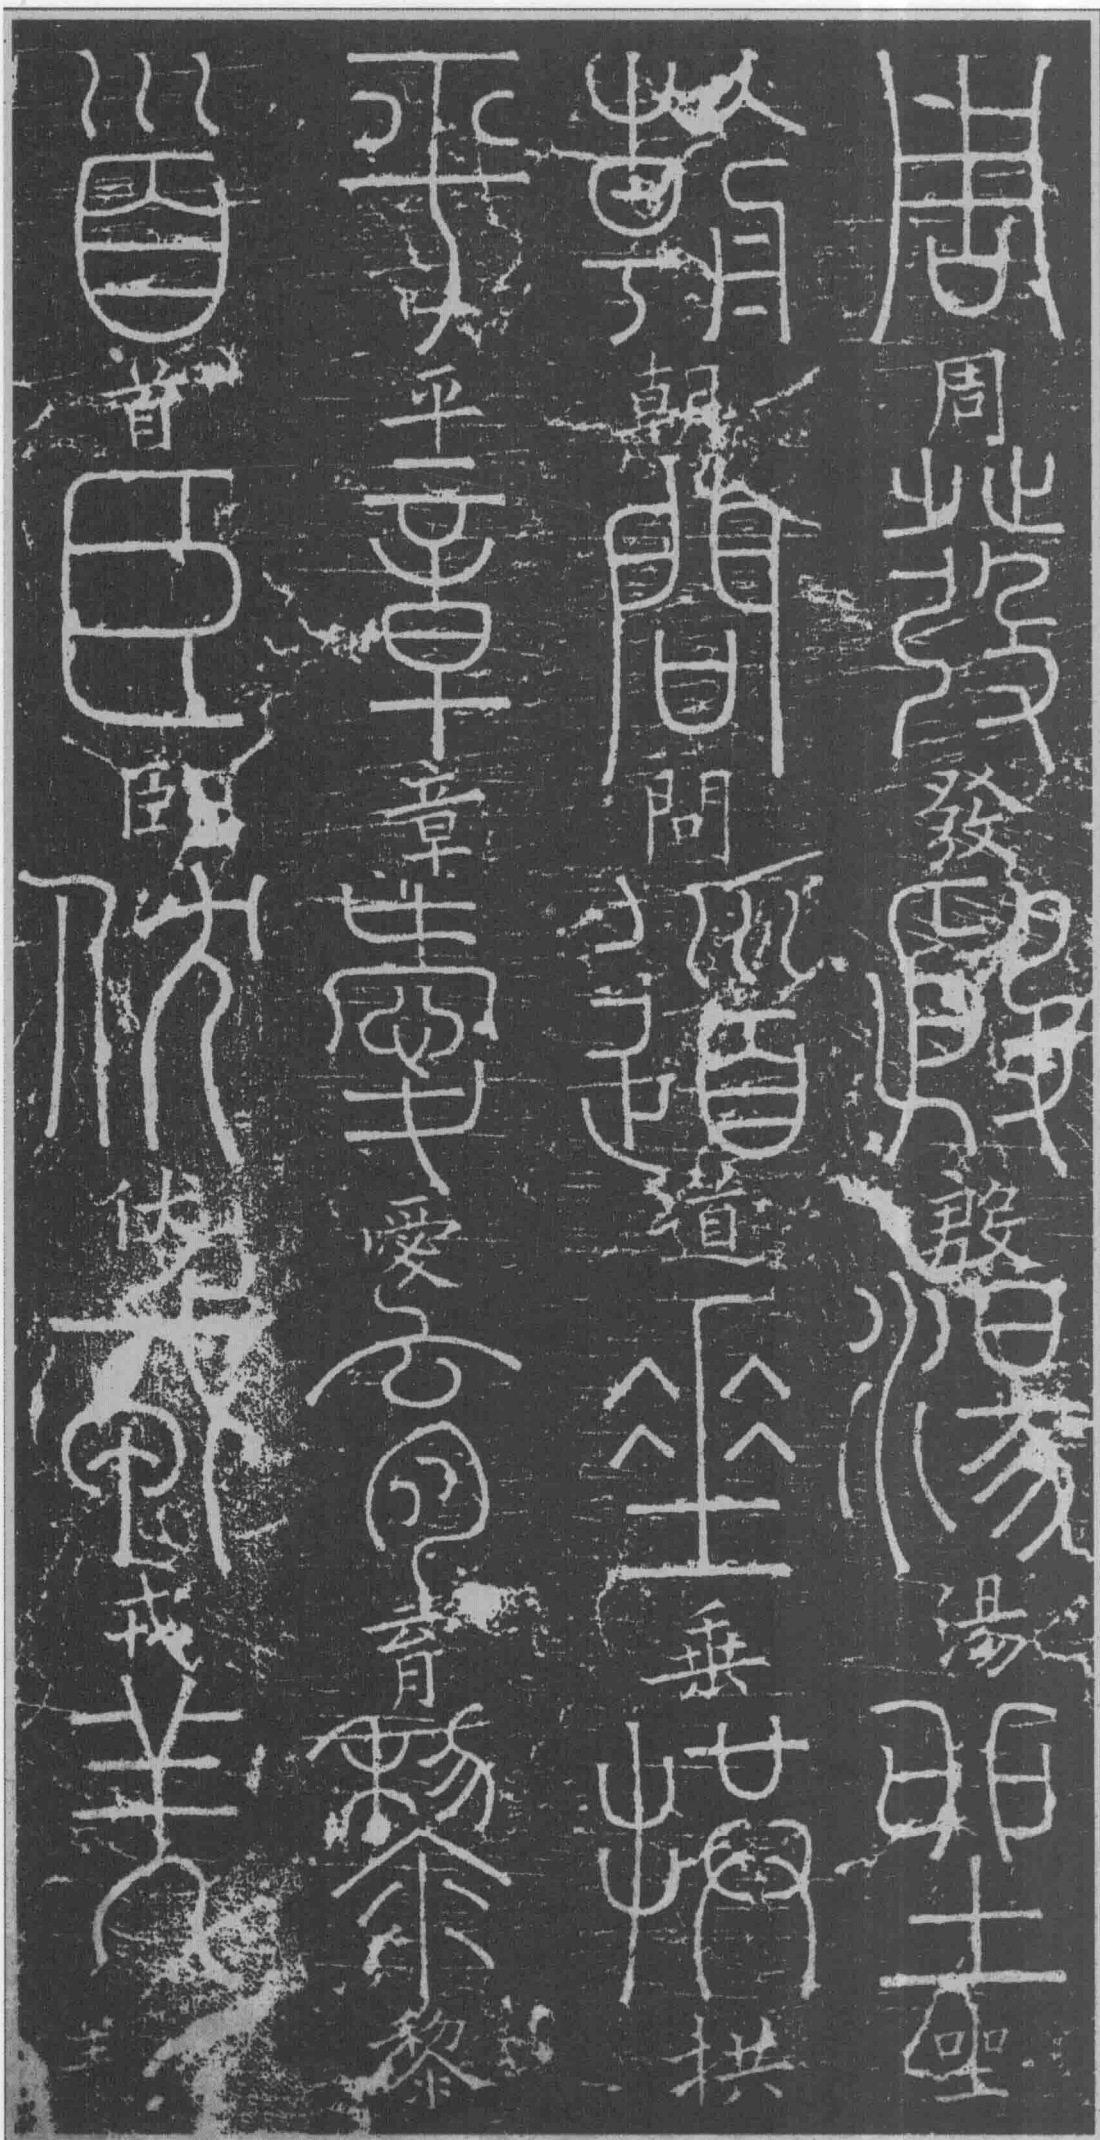 周周發發殷殷湯湯坐坐
朝朝問問道道垂垂拱拱
平平章章愛愛育育黎黎
首首臣臣伏伏戎戎羌